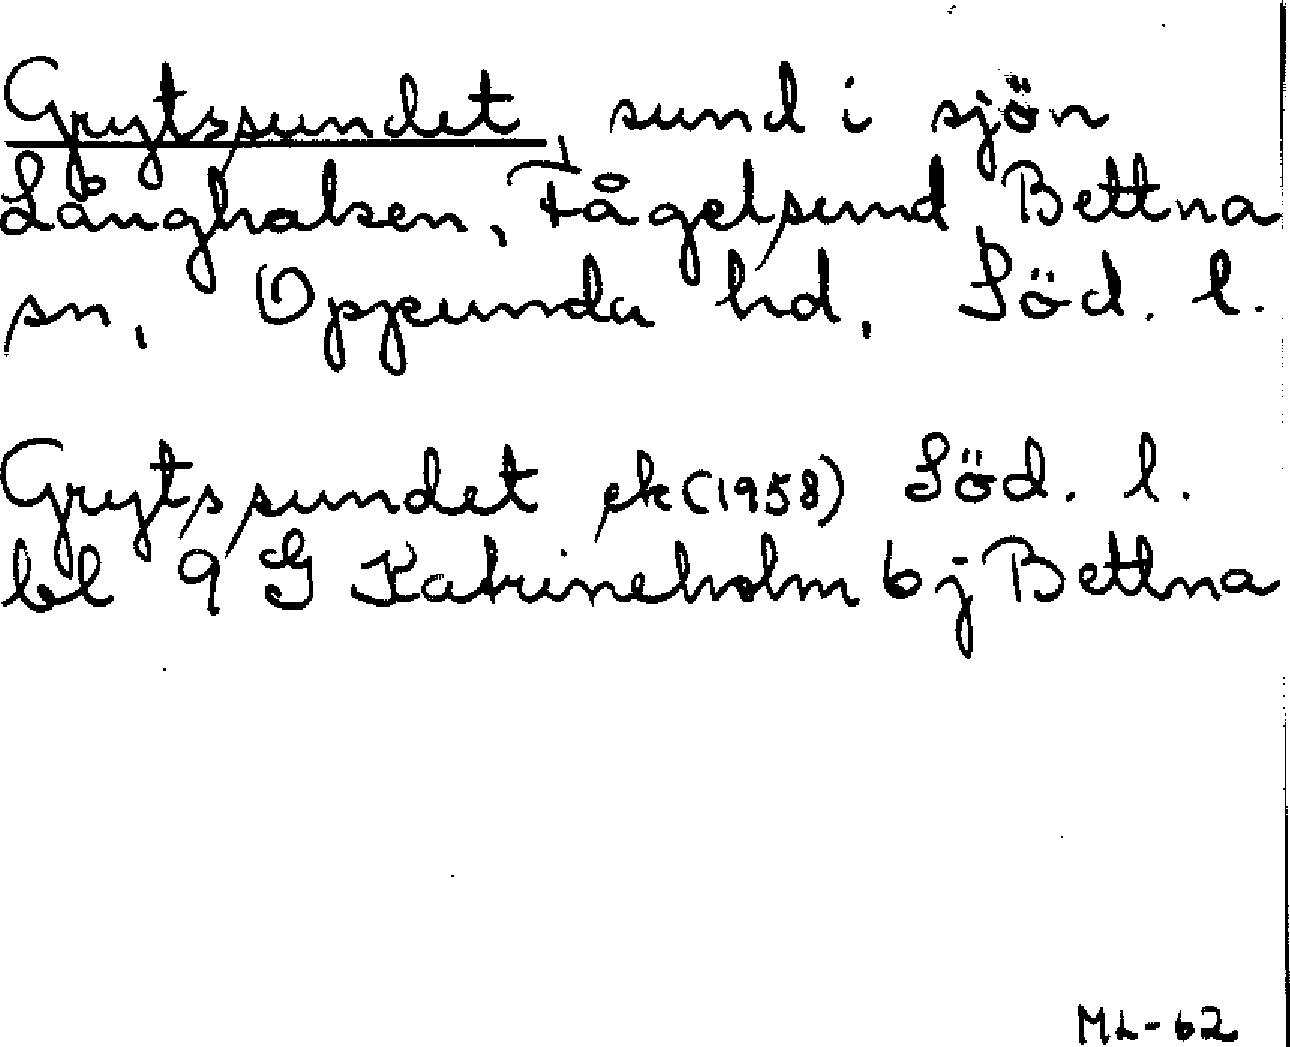 Grytssundet, sund i sjön
Långhalsen, Fågelsund Bettna
sn, Oppunda hd, Söd. l.
Grytssundet ek (1958) Söd. l.
bl 9 G Katrineholm 6 j Bettna
ML-62